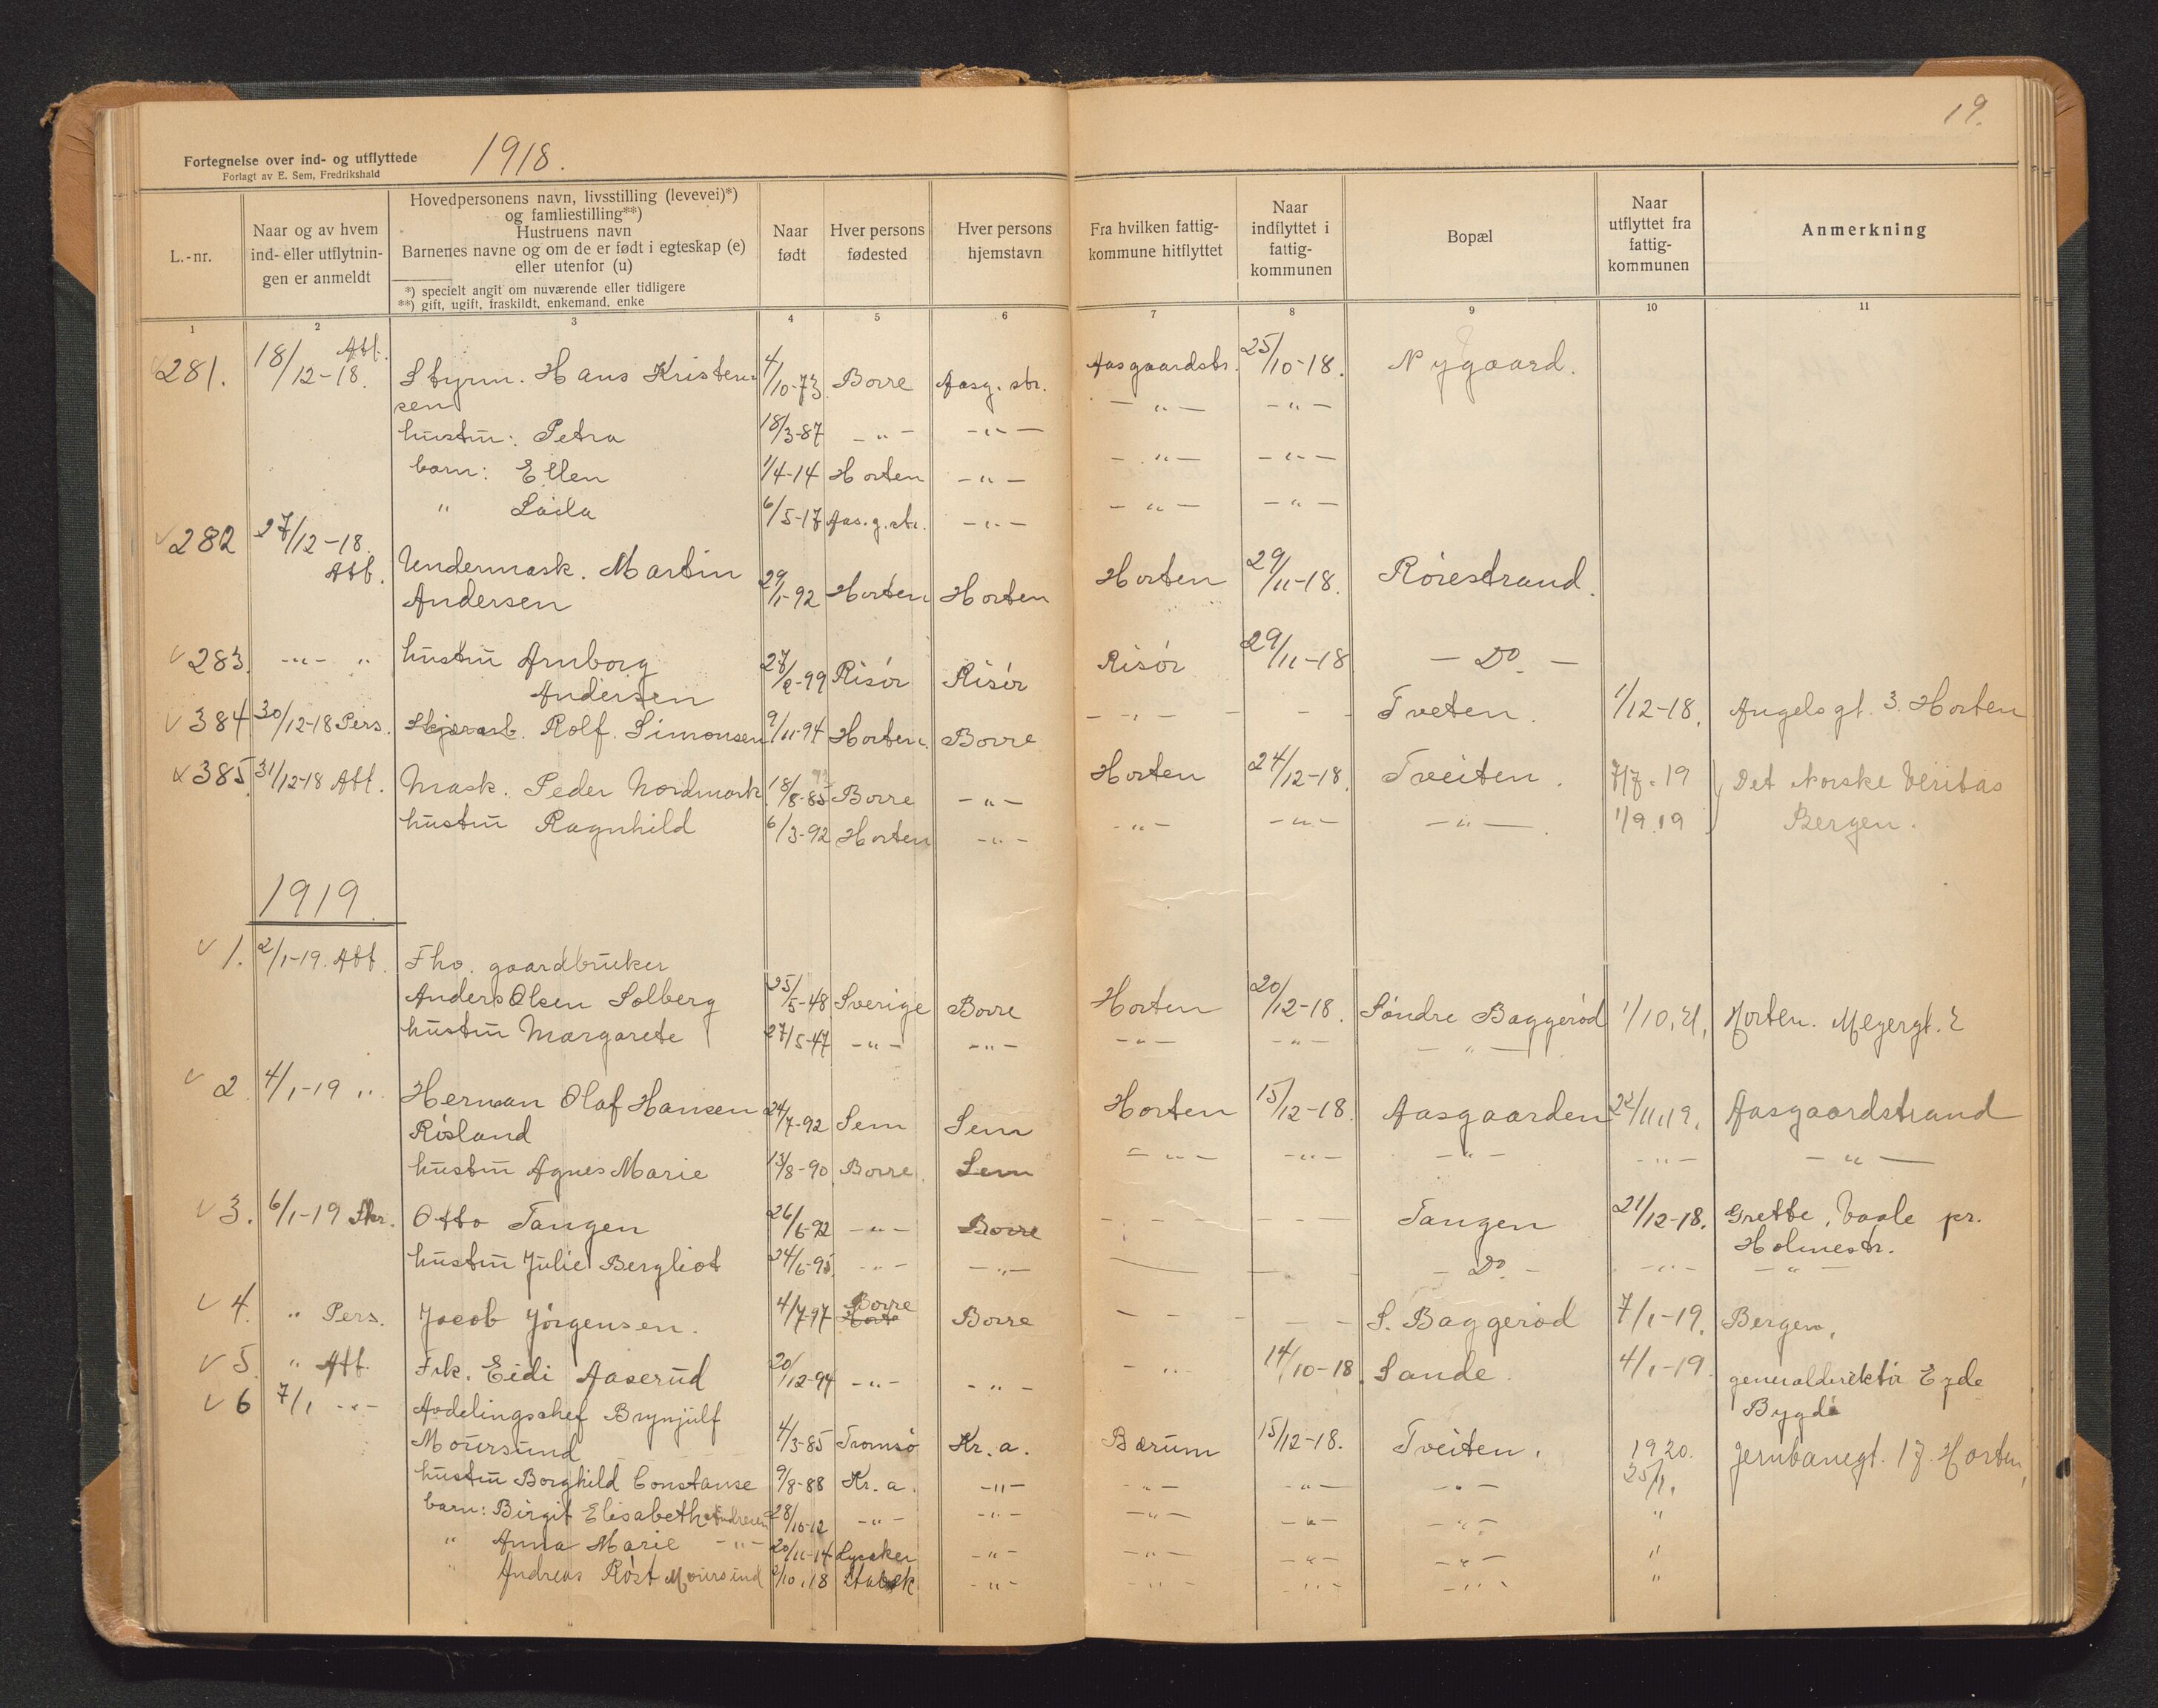 19.
Fortegnelse over ind- og utflyttede
Forlagt av E. Sem, Fredrikshald
1918.
L.-nr.
Naar og av hvem ind- eller utflytnin-gen er anmeldt
Hovedpersonens navn, livsstilling (levevei)*) og famliestilling**)
Hustruens navn
Barnenes navne og om de er født i egteskap (e) eller utenfor (u)
*) specielt angit om nuværende eller tidligere
**) gift, ugift, fraskildt, enkemand, enke
Naar født
Hver persons fødested
Hver persons hjemstavn
Fra hvilken fattig-kommune hitflyttet
Naar indflyttet i fattig-kommunen
Bopæl
Naar utflyttet fra fattig-kommunen
Anmerkning
1 2 3 4 5 6 7 8 9 10 11
281. 18/12-18. Att. Styrm. Hans Kristen-sen 4/10-73. Borre Aasg. str. Aasgaardstr. 25/10-18. Nygaard.
hustru: Petra 18/3-87 -"- -"- -"- -"-
barn: Ellen 1/4-14 Horten -"- -"- -"-
" Laila 6/5-17 Aas.g.str. -"- -"- -"-
282 27/12-18. Att. Undermask. Martin Andersen 29/1-92 Horten Horten Horten 29/11-18. Rørestrand.
283. -"- " hustru Arnborg Andersen 27/2-99 Risør Risør Risør 29/11-18 - Do. -
384 30/12-18 Pers. Rolf Simonsen 9/11-94 Horten. Borre - " - - - Tveten. 1/12-18. Angelsgt. 3. Horten
385. 31/12-18 Att. Mask. Peder Nordmark 18/8-85 Borre -"- Horten 24/12-18. Tveiten. 7/7-19 Det Norske Veritas
hustru Ragnhild 6/3-92 Horten -"- -"- -"- -"-. 1/9.19 Bergen.
1919.
1. 2/1-19. Att. Fho. gaardbruker
Anders Olsen Solberg 25/5-48 Sverige Borre Horten 20/12-18. Søndre Baggerød 1/10.21. Horten. Meyergt. 2
hustru Margarete 27/5-47 -"- -"- -"- -"- -"-
2. 4/1-19 " Herman Olaf Hansen Røsland 24/7-92 Sem Sem Horten 15/12-18. Aasgaarden 22/11.19. Aasgaardstrand
hustru Agnes Marie 13/8-90 Borre. Sem -"- -"- -"- -"- -"-
3. 6/1-19 Skr. Otto Tangen 26/6-92 -"- Borre - - - - Tangen 21/12-18. Grette, Vaale pr. Holmestr.
hustru Julie Bergliot 24/6-95. -"- -"- - - - Do. - -"- -"-
4. " Pers. Jacob Jørgensen. 4/7-97 Borre Borre - - - - S. Baggerød 7/1-19. Bergen.
5. " Att. Frk. Eidi Aaserud 20/12-94 -"- -"- -"- 14/10-18. Sande. 4/1-19. generaldirektør Eyde Bygdø
6 7/1 -"- Avdelingschef Brynjulf
Moursund 4/3-85 Tromsø Kr.a. Bærum 15/12-18. Tveiten. 1920. 25/1. Jernbanegt. 17. Horten,
hustru Borghild Constanse 9/8-88 Kr.a. -"- -"- -"- -"-
barn: Birgit Elisabeth Andresen 28/10-12 -"- -"- -"- -"- -"- "
" Anna Marie -"- 20/11-14 Lysaker -"- -"- -"- -"- "
" Andreas Røst Moursund 2/10.18 Stabæk -"- -"- -"- -"- "